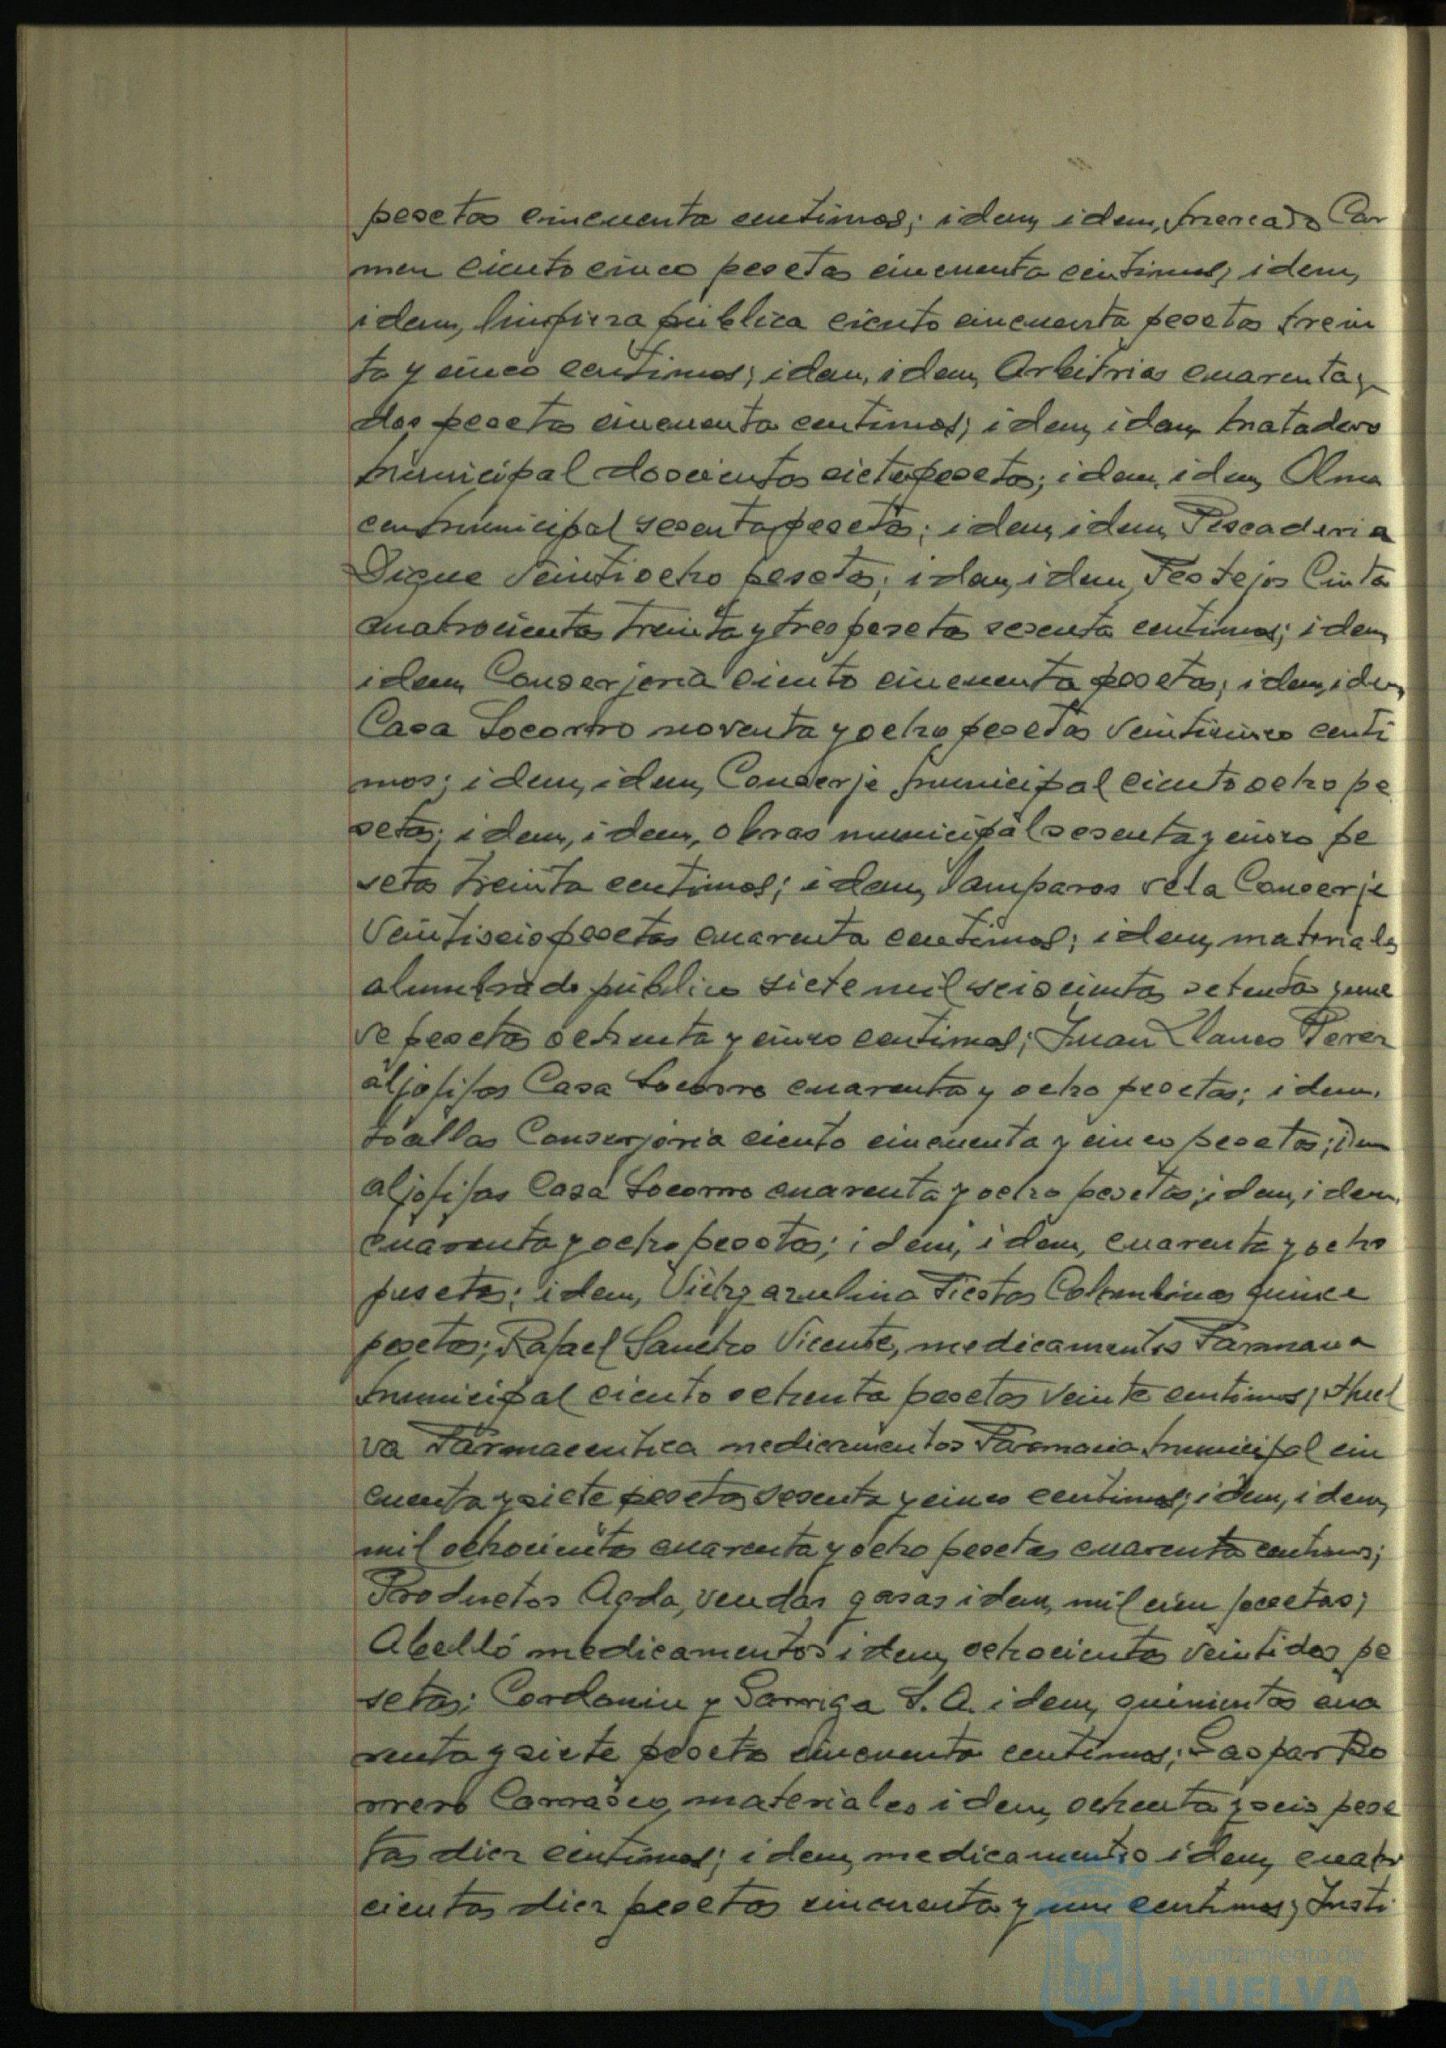 pesetas cincuenta centimos; idem, idem, Mercado Car
men ciento cinco pesetas cincuenta centimos; idem,
idem, limpieza pública ciento cincuenta pesetas trein
ta y cinco centimos; idem, idem, Arbitrios cuarenta y
dos pesetas cincuenta centimos; idem, idem, Matadero
Municipal doscientos siete pesetas; idem, idem, Alma
cen Municipal sesenta pesetas; idem, idem, Pescaderia
Dique veintiocho pesetas; idem, idem, Festejos Cinta
cuatrocientas treinta y tres pesetas sesenta centimos; idem,
idem, Conserjeria ciento cincuenta pesetas; idem, idem,
Casa Socorro noventa y ocho pesetas veinticinco centi
mos; idem, idem, Conserje Municipal ciento ocho pe
setas; idem, idem, obras municipal sesenta y cinco pe
setas treinta centimos; idem, lamparas vela Conserje
veintiseis pesetas cuarenta centimos; idem, materiales
alumbrado público siete mil seiscientas setenta y nue
ve pesetas ochenta y cinco centimos; Juan Llanes Perez
aljofifas Casa Socorro cuarenta y ocho pesetas; idem,
toallas Conserjeria ciento cincuenta y cinco pesetas; idem
aljofifas Casa Socorro cuarenta y ocho pesetas; idem, idem,
cuarenta y ocho pesetas; idem, idem, cuarenta y ocho
pesetas; idem, Vichy azulina Fiestas Colombinas quince
pesetas; Rafael Sancho Vicente, medicamentos Farmacia
Municipal ciento ochenta pesetas veinte centimos; Huel
va Farmaceutica medicamentos Farmacia Municipal cin
cuenta y siete pesetas sesenta y cinco centimos; idem, idem,
mil ochocientas cuarenta y ocho pesetas cuarenta centimos;
Productos Aeda, vendas gasas idem, mil cien pesetas;
Abelló medicamentos idem, ochocientas veintidos pe
setas; Cordoniu y Garriga S.A. idem, quinientas cua
renta y siete pesetas cincuenta centimos; Gaspar Bo
rrero Carrasco, materiales idem, ochenta y seis pese
tas diez centimos; idem, medicamentos idem, cuatro
cientas diez pesetas cincuenta y un centimos; Insti
Ayuntamiento de
HUELVA